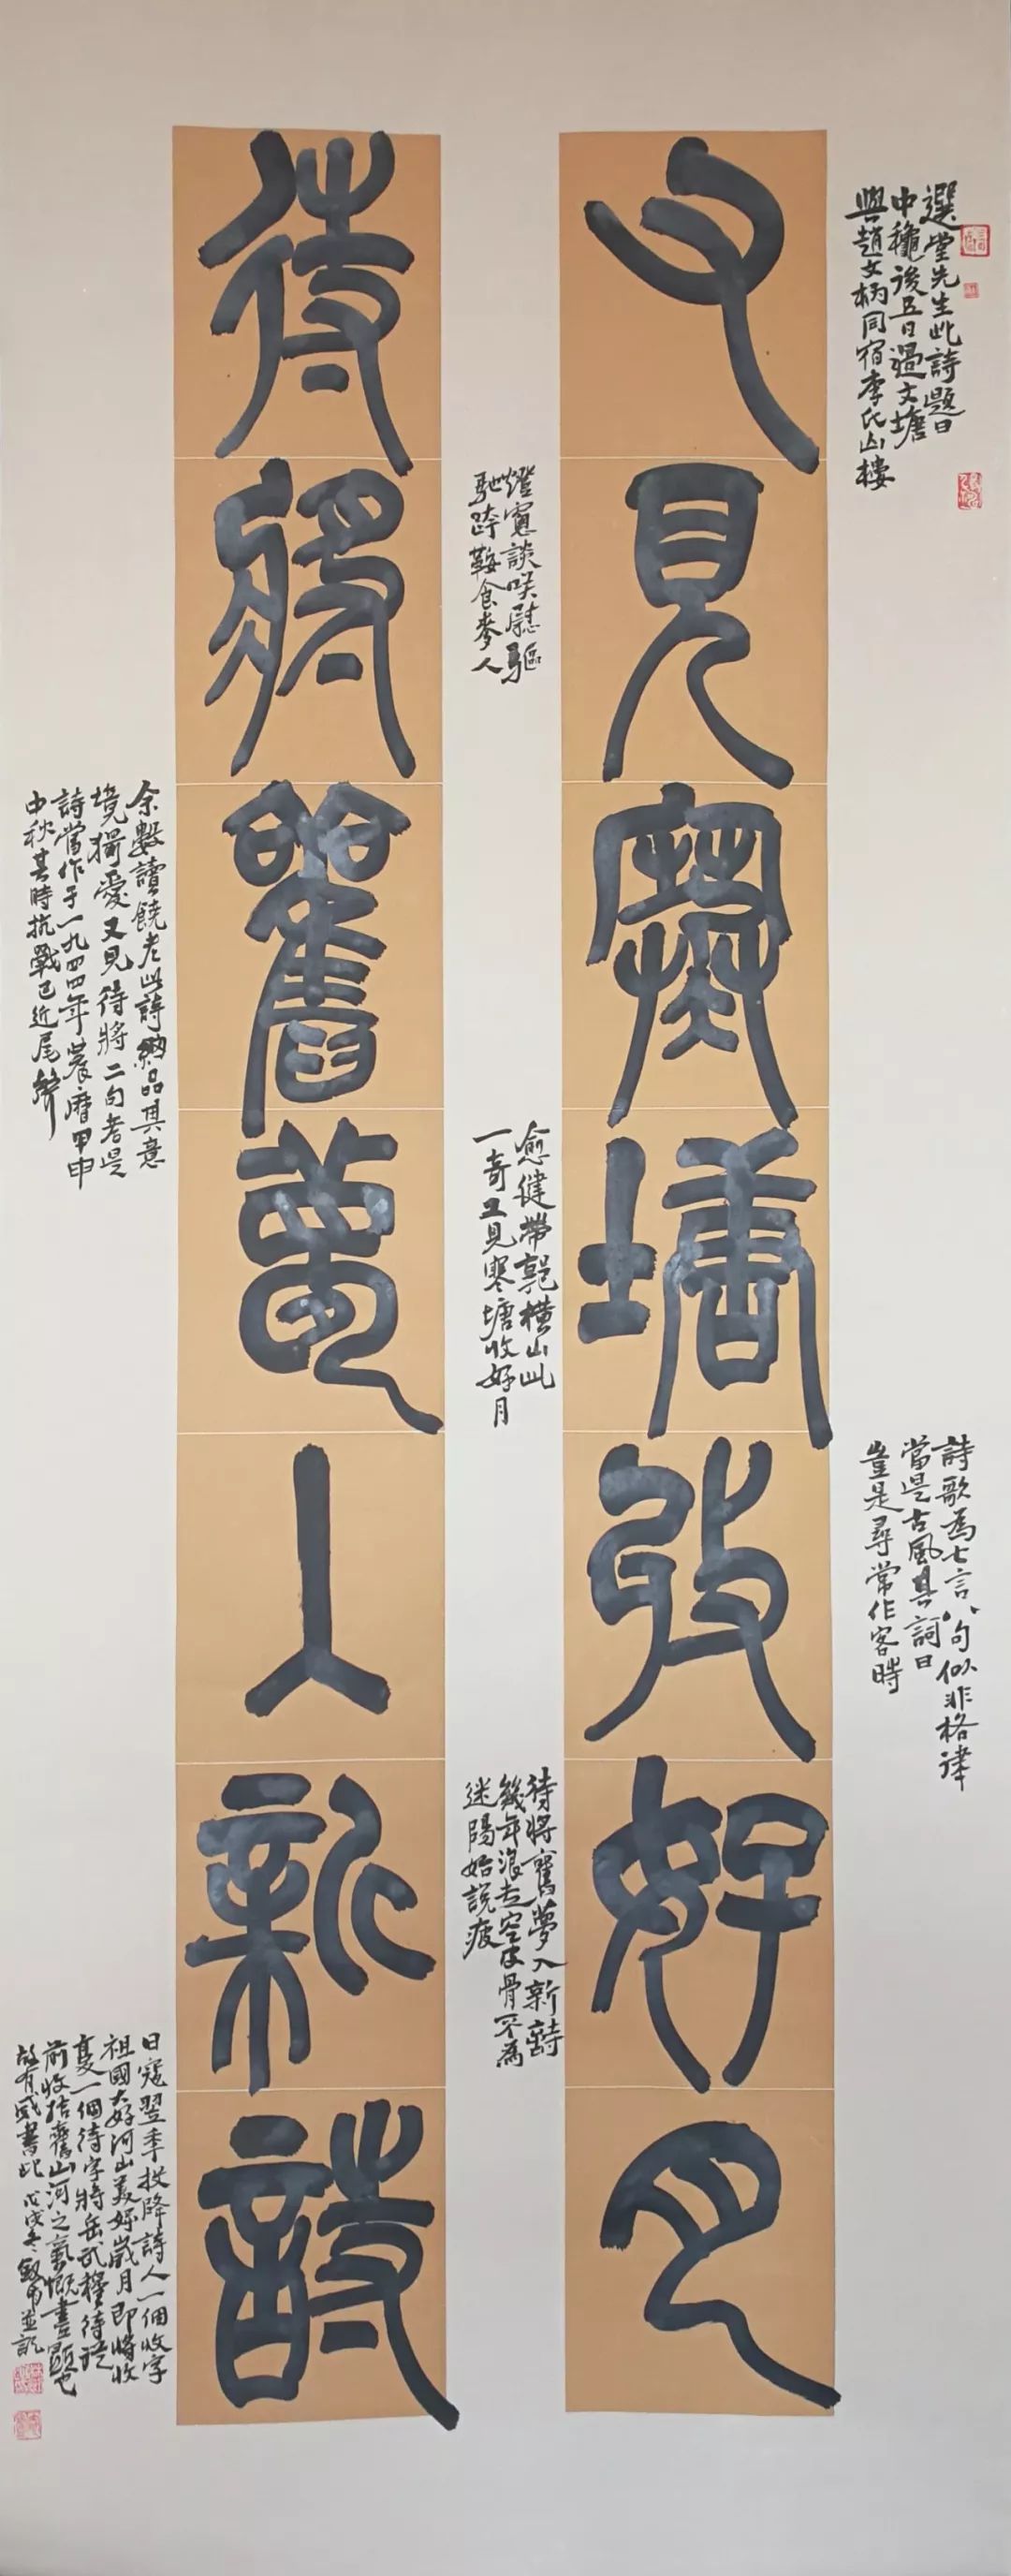 又見寒塘收好月
待將舊夢入新詩
選堂先生此詩題曰
中穐後五日過文塘
與趙文柄同宿李氏山樓
詩歌為七言八句似非格律
當是古風其詞曰
豈是尋常作客時
燈窗談笑慰驅
馳跨鞍食麥人
愈健帶郭橫山此
一奇又見寒塘收好月
待將舊夢入新詩
幾年浪走空皮骨不為
迷陽始說疲
余數讀饒老此詩細品其意
境獨愛又見待將二句者是
詩當作于一九四四年農曆甲申
中秋其時抗戰已近尾聲
日寇翌年投降詩人一個收字
祖國大好河山美好歲月即將收
復一個待字將岳武穆待從
前收拾舊山河之氣慨盡顯也
故有感書此戊戌冬並記